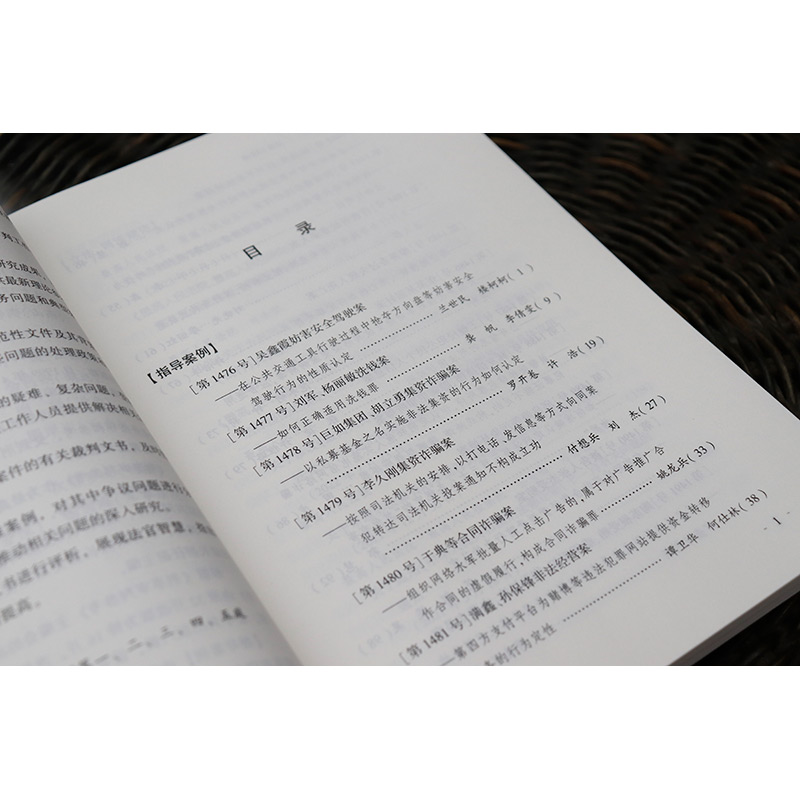 研究成果
其最新理论
务问题和典
范性文件及其
些问题的处理政策
的疑难、复杂问题,
工作人员提供解决相
案件的有关裁判文书,及
案例,对其中争议问题进行
推动相关问题的深入研究。
书进行评析,展现法官智慧,
提高。
一、二、三、四、五
目 录
【指导案例】
[第1476号]吴鑫霞妨害安全驾驶案
——在公共交通工具行驶过程中抢夺方向盘等妨害安全
驾驶行为的性质认定 兰世民 楼柯柯(1)
[第1477号]刘军、杨丽敏洗钱案
——如何正确适用洗钱罪 龚帆 李倩雯(9)
[第1478号]巨如集团、胡立勇集资诈骗案
——以私募基金之名实施非法集资的行为如何认定
罗开卷 许浩(19)
[第1479号]李久刚集资诈骗案
——按照司法机关的安排,以打电话、发信息等方式向同案
犯转达司法机关投案通知不构成立功 付想兵 刘杰(27)
[第1480号]于典等合同诈骗案
——组织网络水军批量人工点击广告的,属于对广告推广合
作合同的虚假履行,构成合同诈骗罪 姚龙兵(33)
[第1481号]满鑫、孙保锋非法经营案
——第四方支付平台为赌博等违法犯罪网站提供资金转移
的行为定性 谭卫华 何仕林(38)
- 1